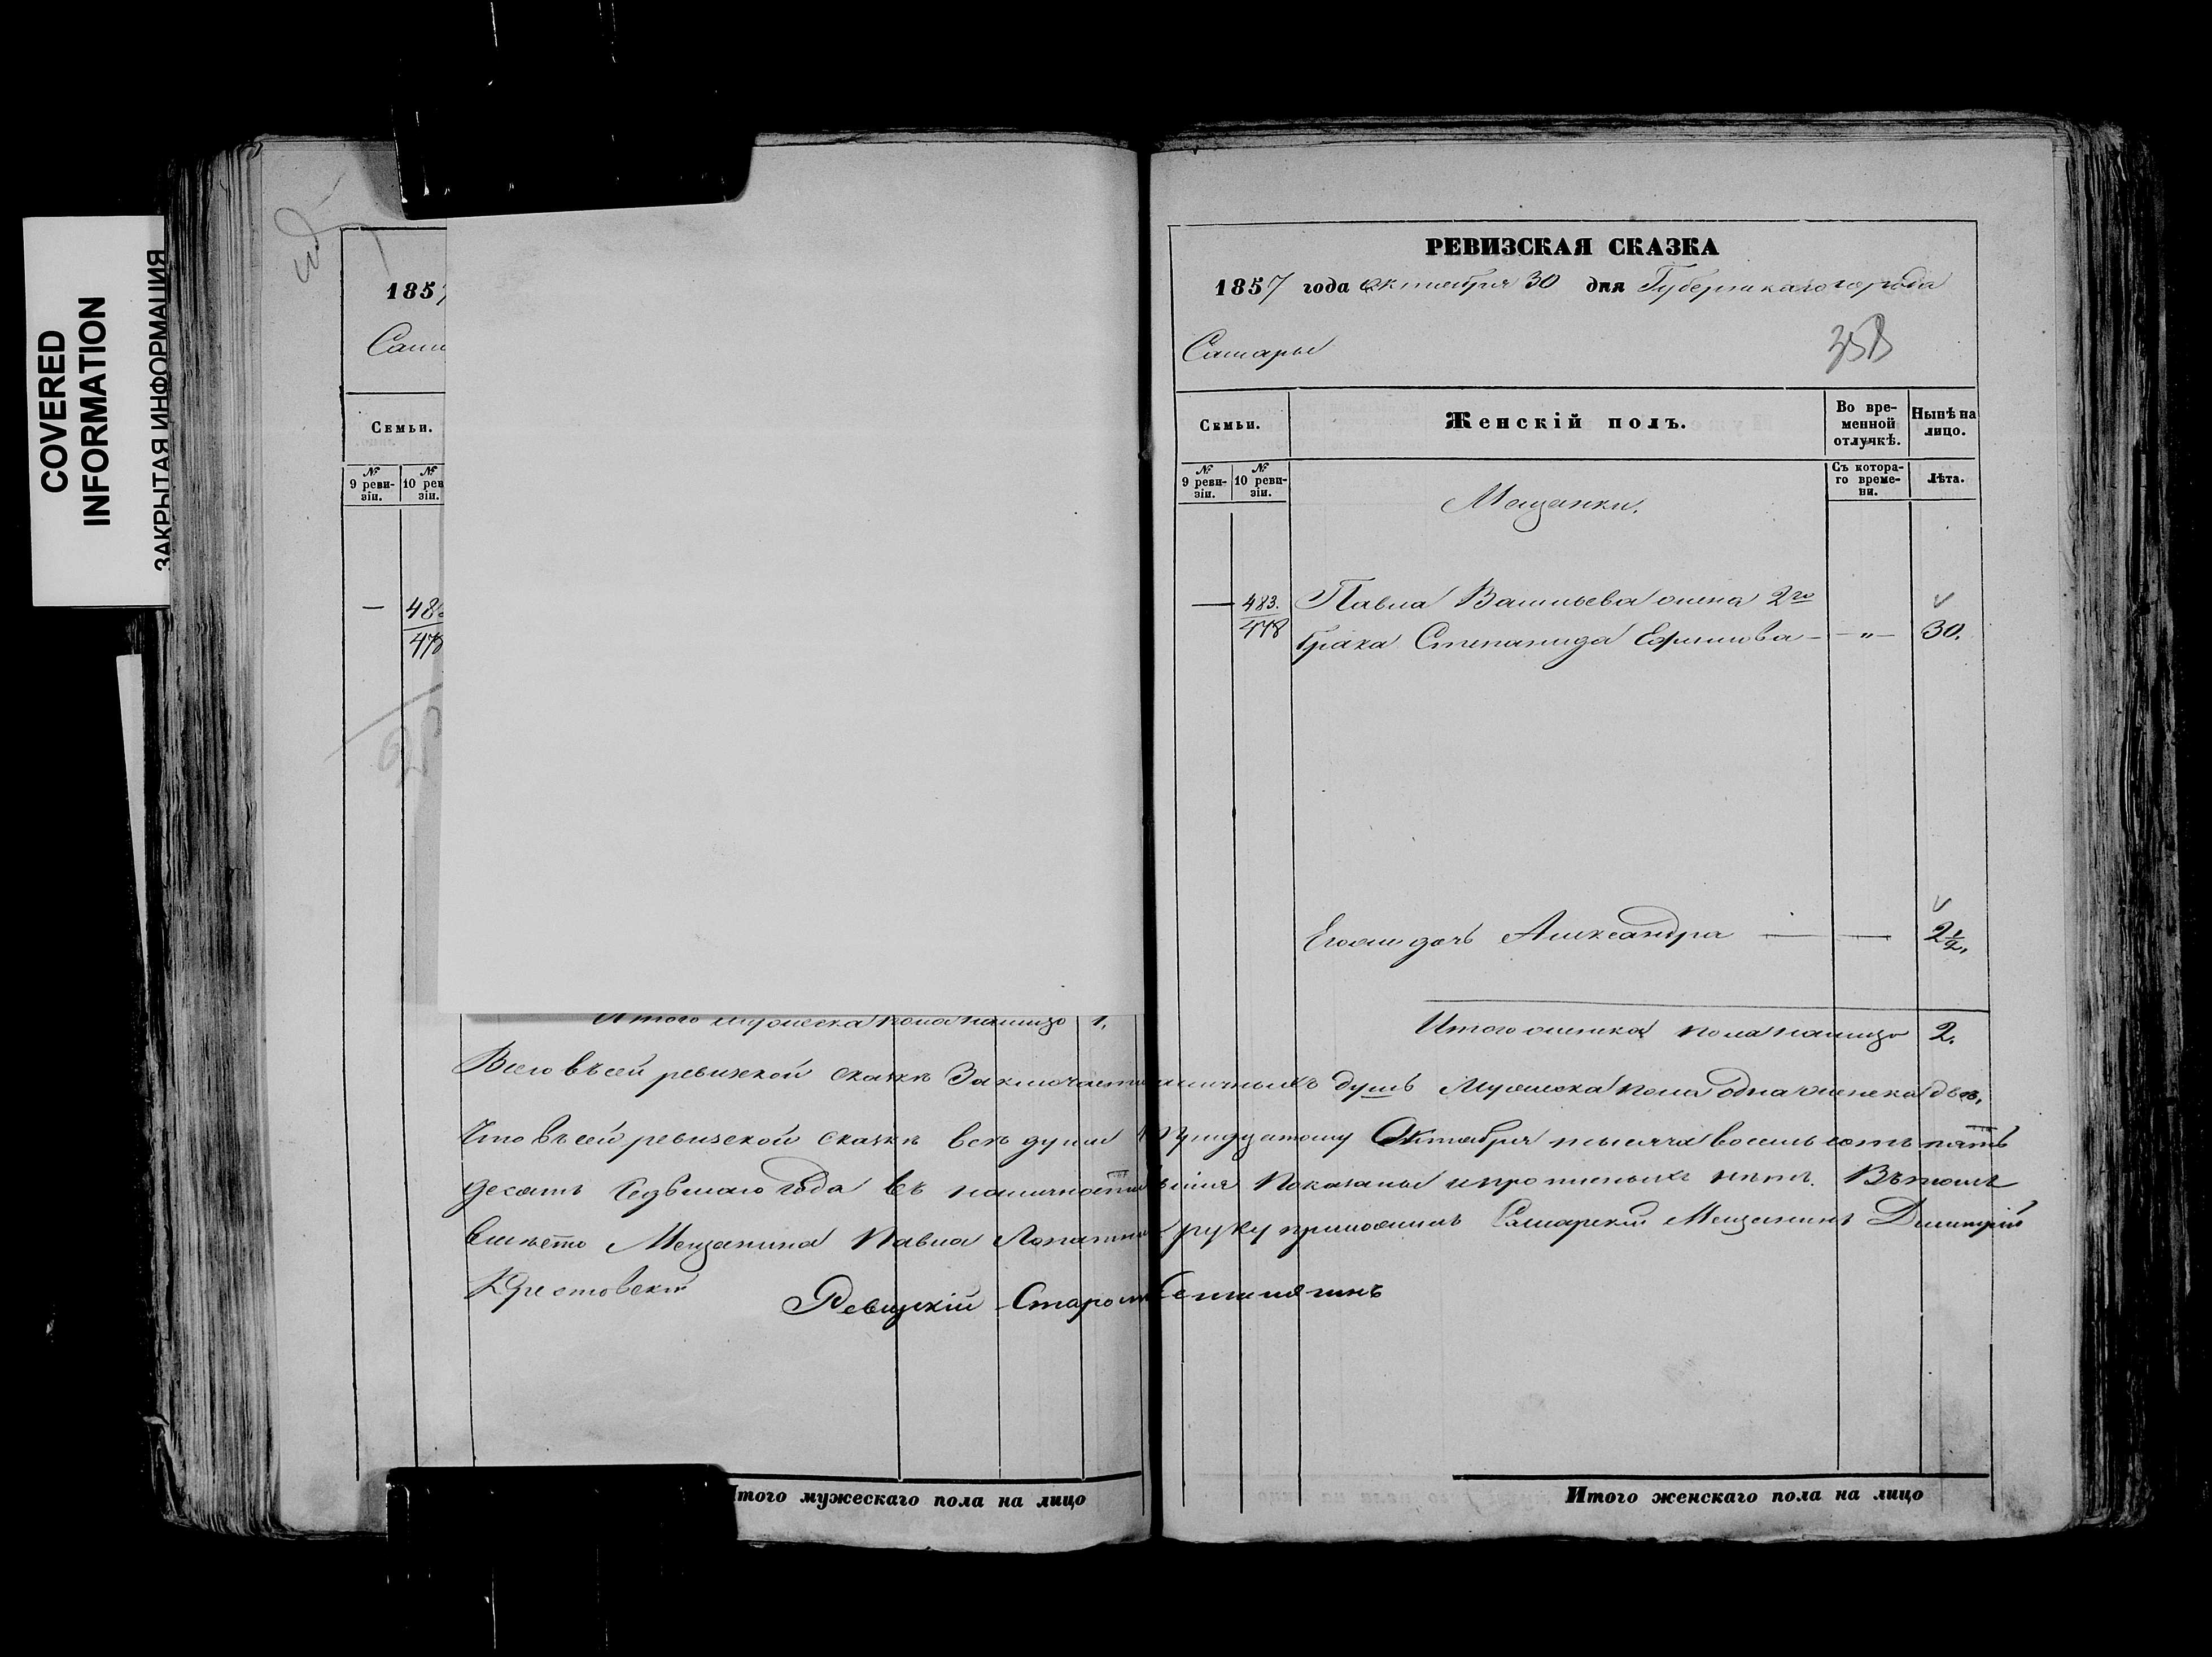 COVERED
INFORMATION
ЗАКРЫТАЯ ИНФОРМАЦИЯ
185
Сам
Семьи.
№ 9 реви-зіи.
№ 10 рев зіи.
— 48
478
Итого мужеска пола налицо 1.
РЕВИЗСКАЯ СКАЗКА
1857 года Октября 30 дня Губернскаго города
Самары
358
Семьи.
Женскій полъ.
Во вре-менной отлучкѣ.
Нынѣ на лицо.
№ 9 реви-зіи.
№ 10 реви-зіи.
Съ котора-го време-ни.
Лѣта.
Мещанки.
— 483. Павла Васильева жена 2го
478 брака Степанида Ефимова — „ — 30.
Егоже дочь Александра — — 2½.
Итого женска пола налицо 2.
Всего въ сей ревизской сказкѣ Заключается наличныхъ душъ Мужеска пола одна женска две.
Что въ сей ревизской сказкѣ всѣ души къ тридцатому Октября тысяча восемь сотъ пять
десятъ седьмаго года въ наличности Показаны и прописныхъ нѣтъ. Въ томъ
вмѣсто Мещанина Павла руку приложилъ Самарскій Мещанинъ Дмитрій
Крестовскій
Ревизскій Староста
Итого мужескаго пола на лицо
Итого женскаго пола на лицо